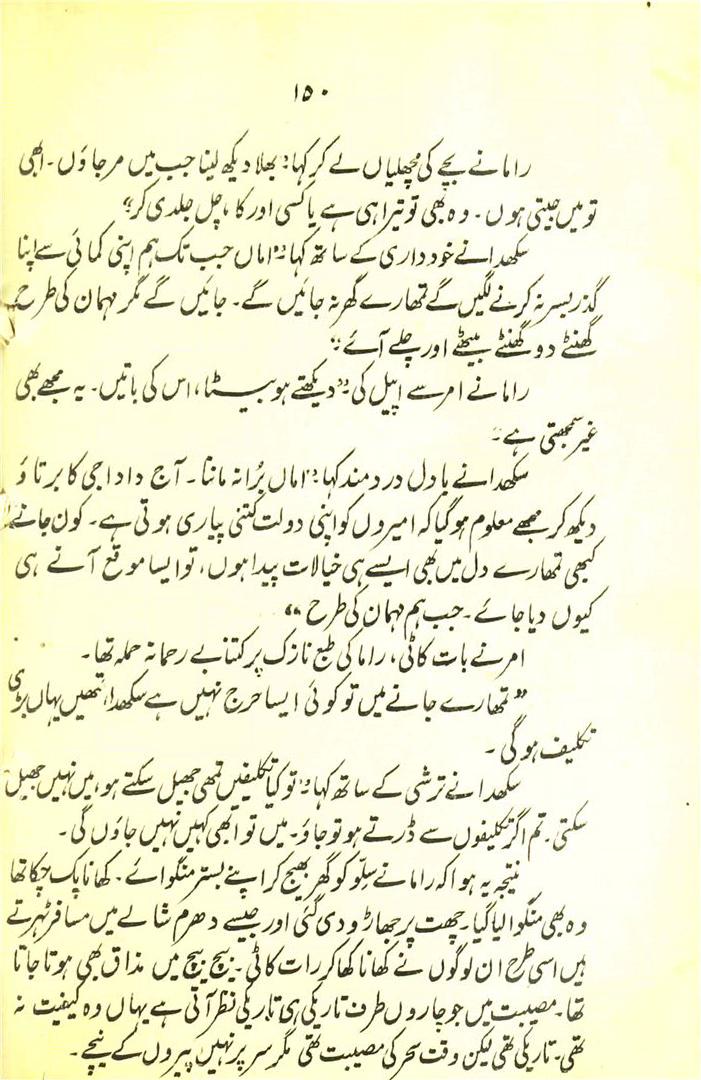 ۱۵۰
راما نے بچے کی مچھلیاں لے کر کہا: بھلا دیکھ لینا جب میں مر جاؤں۔ ابھی
تو میں جیتی ہوں۔ وہ بھی تو تیرا ہی ہے یا کسی اور کا، چل جلدی کر؟
سکھدا نے خود داری کے ساتھ کہا: "اماں جب تک ہم اپنی کمائی سے اپنا
گذر بسر نہ کرنے لگیں گے تمھارے گھر نہ جائیں گے۔ جائیں گے مگر مہمان کی طرح
گھنٹے دو گھنٹے بیٹھے اور چلے آئے"
راما نے امر سے اپیل کی "دیکھتے ہو بیٹا، اس کی باتیں۔ یہ مجھے بھی
غیر سمجھتی ہے"
سکھدا نے بادل دردمند کہا: "اماں بُرا نہ ماننا۔ آج دادا جی کا برتاؤ
دیکھ کر مجھے معلوم ہو گیا کہ امیروں کو اپنی دولت کتنی پیاری ہوتی ہے۔ کون جانے
کبھی تمھارے دل میں بھی ایسے ہی خیالات پیدا ہوں، تو ایسا موقع آنے ہی
کیوں دیا جائے۔ جب ہم مہمان کی طرح"
امر نے بات کاٹی، راما کی طبع نازک پر کتنا بے رحمانہ حملہ تھا۔
"تمھارے جانے میں تو کوئی ایسا حرج نہیں ہے سکھدا، تمھیں یہاں بڑی
تکلیف ہو گی۔
سکھدا نے ترشی کے ساتھ کہا: "تو کیا تکلیفیں تمھی جھیل سکتے ہو، میں نہیں جھیل
سکتی۔ تم اگر تکلیفوں سے ڈرتے ہو تو جاؤ۔ میں تو ابھی کہیں نہیں جاؤں گی۔
نتیجہ یہ ہوا کہ راما نے سلّو کو گھر بھیج کر اپنے بستر منگوائے۔ کھانا پک چکا تھا
وہ بھی منگوا لیا گیا۔ چھت پر جھاڑو دی گئی اور جیسے دھرم شالے میں مسافر ٹھہرتے
ہیں اسی طرح ان لوگوں نے کھانا کھا کر رات کاٹی۔ بیچ بیچ میں مذاق بھی ہوتا جاتا
تھا۔ مصیبت میں جو چاروں طرف تاریکی ہی تاریکی نظر آتی ہے یہاں وہ کیفیت نہ
تھی۔ تاریکی تھی لیکن وقت سحر کی مصیبت تھی مگر سر پر نہیں پیروں کے نیچے۔